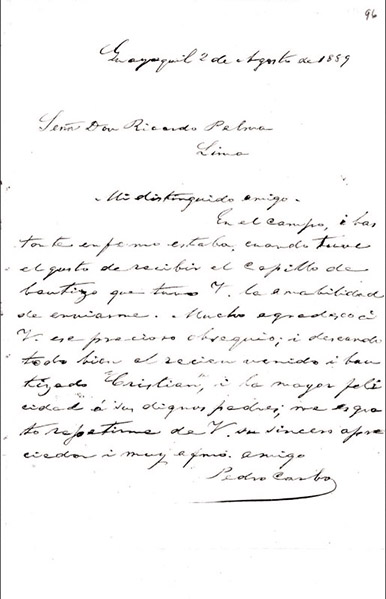 96
Guayaquil 2 de Agosto de 1889
Señr Don Ricardo Palma
Lima
Mi distinguido amigo.
En el campo, i bas
tante enfermo estaba, cuando tuve
el gusto de recibir el capillo de
bautizo que tuvo V. la amabilidad
de enviarme. Mucho agradezco á
V. ese precioso obsequio; i deseando
todo bien al recien venido i bau
tizado "Cristian", i la mayor feli
cidad á sus dignos padres, me es gra
to repetirme de V. su sincero apre
ciador i muy afmo. amigo
Pedro Carbo